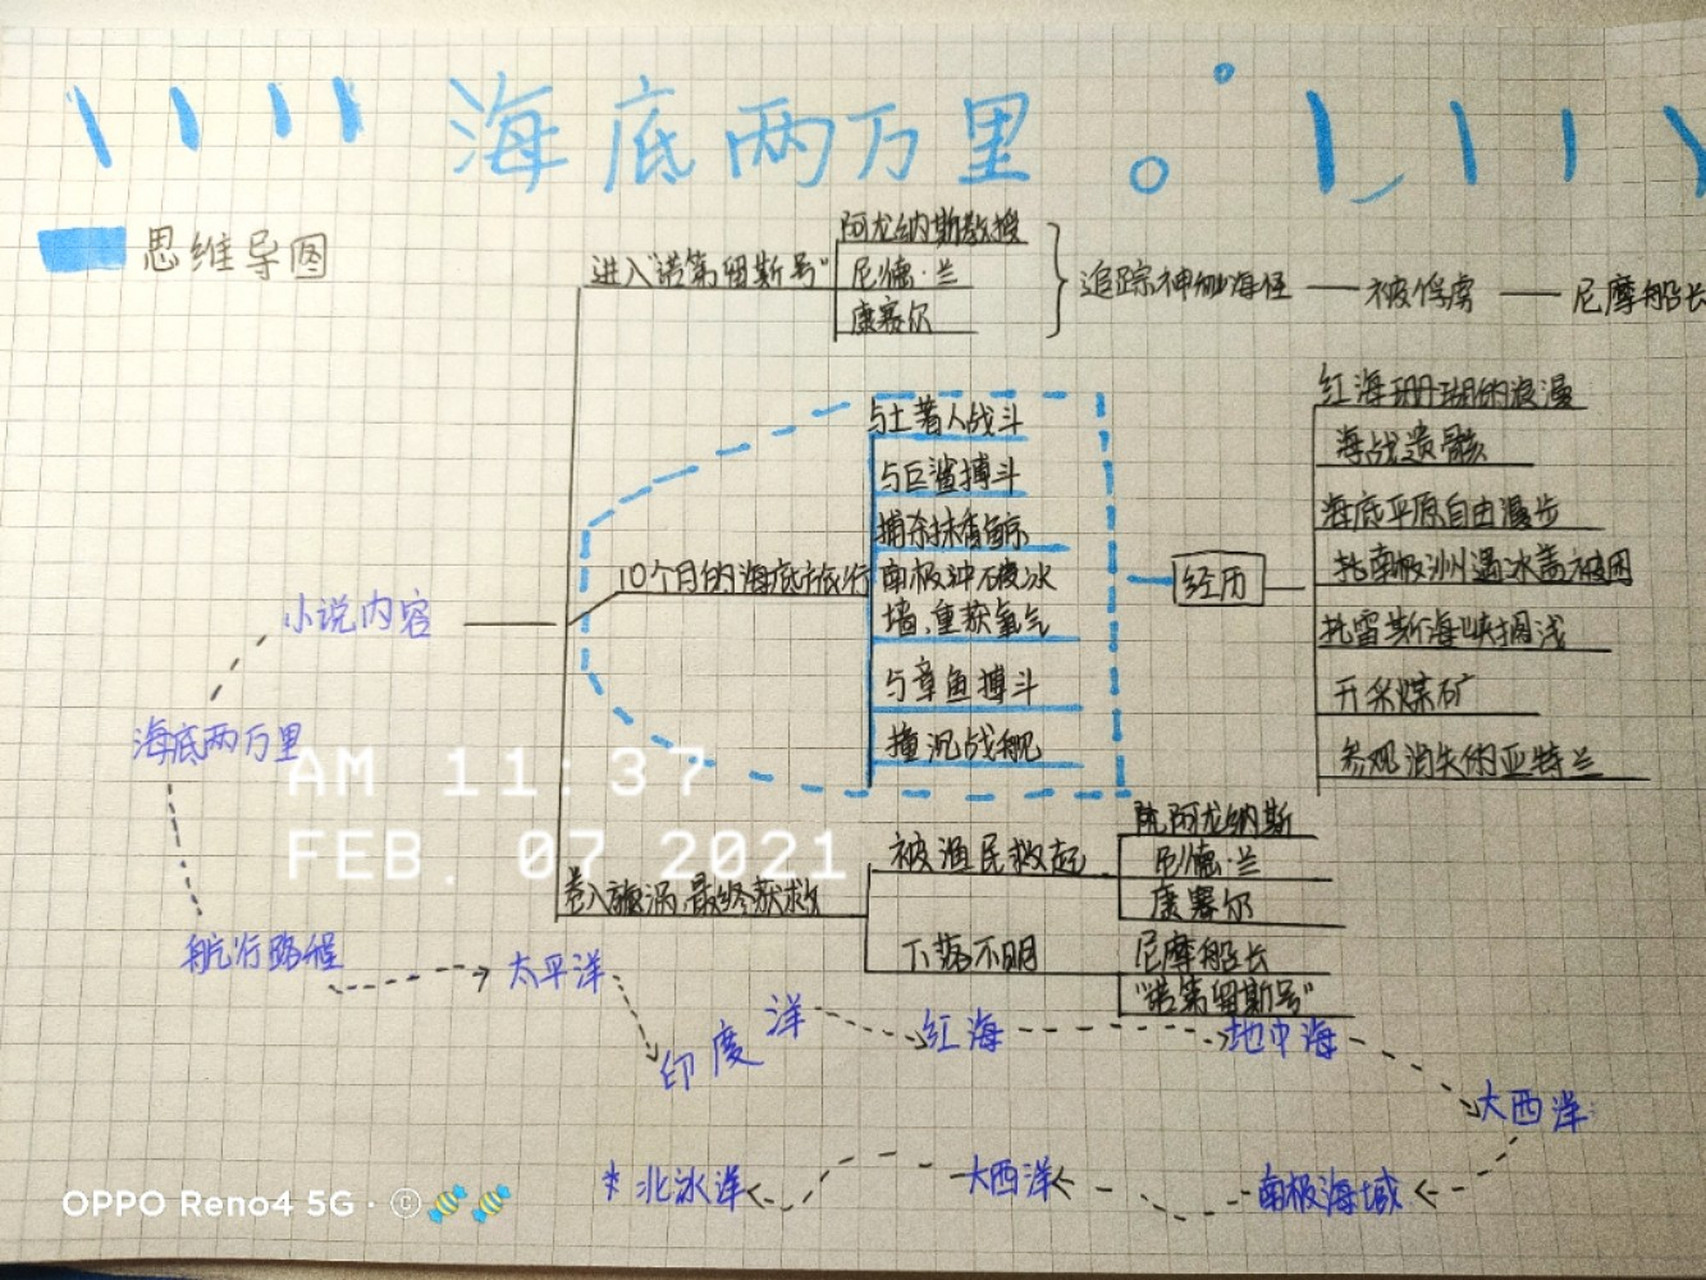 海底两万里
思维导图
阿龙纳斯教授
进入"诺第留斯号"
尼德·兰
康塞尔
追踪神秘海怪
被俘虏
尼摩船长
与土著人战斗
与巨鲨搏斗
捕杀抹香鲸
10个月的海底旅行
南极冲破冰
墙,重获氧气
与章鱼搏斗
撞沉战舰
经历
红海珊瑚的浪漫
海战遗骸
海底平原自由漫步
托雷斯海峡搁浅
开采煤矿
参观消失的亚特兰
小说内容
海底两万里
AM 11:37
FEB. 07 2021
卷入旋涡,最终获救
被渔民救起
阿龙纳斯
尼德·兰
康塞尔
下落不明
尼摩船长
"诺第留斯号"
航行路程
太平洋
印度洋
红海
地中海
大西洋
南极海域
大西洋
*北冰洋
OPPO Reno4 5G · ©